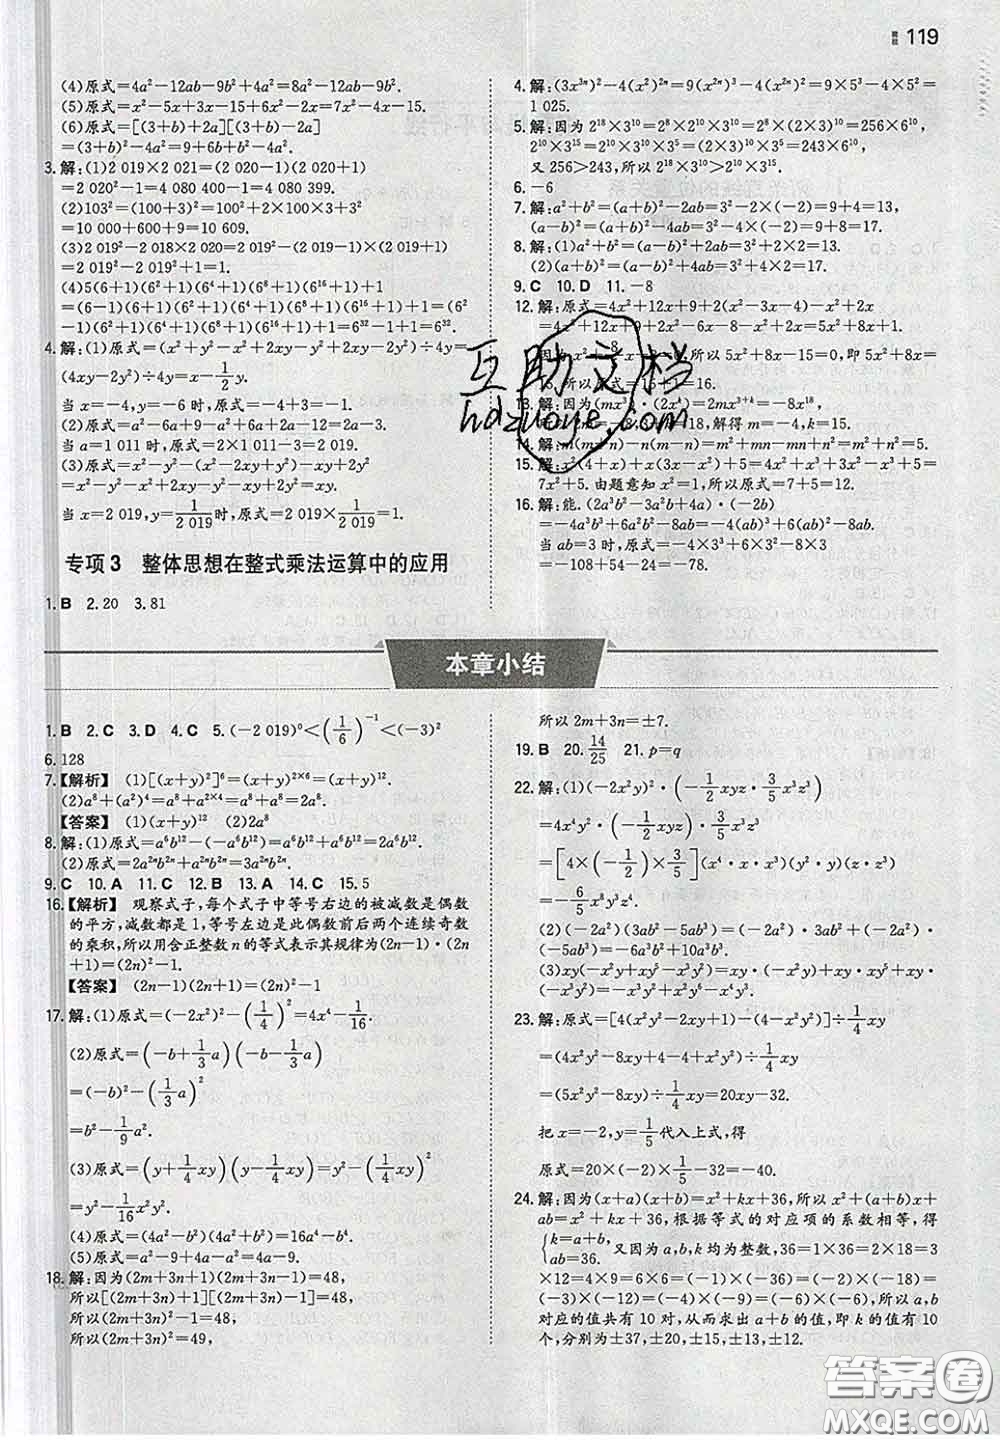 119
(4)原式=4a²-12ab-9b²+4a²=8a²-12ab-9b².
(5)原式=x²-5x+3x-15-6x²+6x=7x²+4x-15.
(6)原式=[(3+b)+2a][(3+b)-2a]
=(3+b)²-4a²=9+6b+b²-4a².
3.解:(1)2 019×2 021=(2 020-1)(2 020+1)
=2 020²-1=4 080 400-1=4 080 399.
(2)103²=(100+3)²=100²+2×100×3+3²=
10 000+600+9=10 609.
(3)2 019²-2 018×2 020=2 019²-(2 019-1)×(2 019+1)
=2 019²-2 019²+1=1.
(4)5(6+1)(6²+1)(6⁴+1)(6⁸+1)(6¹⁶+1)+1
=(6-1)(6+1)(6²+1)(6⁴+1)(6⁸+1)(6¹⁶+1)+1=(6²
-1)(6²+1)(6⁴+1)(6⁸+1)(6¹⁶+1)+1=6³²-1+1=6³².
4.解:(1)原式=(x²+y²-x²+2xy-y²+2xy-2y²)÷4y=
(4xy-2y²)÷4y=x-1/2y.
当x=-4,y=-6时,原式=-4+3=-1.
(2)原式=a²-6a+9-a²+6a+2a-12=2a-3.
当a=1 011时,原式=2×1 011-3=2 019.
(3)原式=x²-y²-(x²-xy+2xy-2y²)
=x²-y²-x²-xy+2y²=y²-xy.
当x=2 019,y=1/2 019时,
专项3 整体思想在整式乘法运算中的应用
1.B 2.20 3.81
4.解:(3x³ᵐ)²-4(x²)²ᵐ=9(x²ᵐ)³-4(x²ᵐ)²=9×5³-4×5²=
1 025.
5.解:因为2¹⁸×3¹⁰=2⁸×2¹⁰×3¹⁰=2⁸×(2×3)¹⁰=256×6¹⁰,
又256>243,所以2¹⁸×3¹⁰>2¹⁰×3¹⁵.
6.-6
7.解:a²+b²=(a+b)²-2ab=3²-2×(-2)=9+4=13,
(a-b)²=(a+b)²-4ab=3²-4×(-2)=9+8=17.
8.解:(1)a²+b²=(a-b)²+2ab=3²+2×2=13.
(2)(a+b)²=(a-b)²+4ab=3²+4×2=17.
9.C 10.D 11.-8
12.解:原式=4x²+12x+9+2(x²-3x-4)-x²+2x
=4x²+12x+9+2x²-6x-8-x²+2x=5x²+8x+1.
所以5x²+8x-15=0,即5x²+8x=
15.所以原式=15+1=16.
13.解:因为(mx³)·(2xᵏ)=2mx³⁺ᵏ=-8x¹⁸,
解得m=-4,k=15.
14.解:m(m+n)-n(m-n)=m²+mn-mn+n²=m²+n².
15.解:x²(4+x)+x(3x-x²)+5=4x²+x³+3x²-x³+5=
7x²+5.由题意知x²=1,所以原式=7+5=12.
16.解:能.(2a³b²-3a²b²+4a)·(-2b)
=-4a³b³+6a²b³-8ab
=-4(ab)³+6(ab)²b-8ab.
本章小结
1.B 2.C 3.D 4.C 5.(-2 019)⁰<(1/6)⁻¹<(-3)²
6.128
7.【解析】 (1)[(x+y)²]⁶=(x+y)²ˣ⁶=(x+y)¹².
(2)a⁸+(a²)⁴=a⁸+a²ˣ⁴=a⁸+a⁸=2a⁸.
【答案】 (1)(x+y)¹² (2)2a⁸
8.解:(1)原式=a⁶b¹²-(-a⁶b¹²)=a⁶b¹²+a⁶b¹²=2a⁶b¹².
(2)原式=2a²ⁿb²ⁿ+a²ⁿb²ⁿ=3a²ⁿb²ⁿ.
9.C 10.A 11.C 12.B 13.A 14.C 15.5
16.【解析】 观察式子,每个式子中等号右边的被减数是偶数
的平方,减数都是1,等号左边是此偶数前后两个连续奇数
的乘积,所以用含正整数n的等式表示其规律为(2n-1)·(2n
+1)=(2n)²-1.
【答案】 (2n-1)(2n+1)=(2n)²-1
17.解:(1)原式=(-2x²)²-(1/4)²=4x⁴-1/16.
(2)原式=(-b+1/3a)(-b-1/3a)
=(-b)²-(1/3a)²
=b²-1/9a².
(3)原式=(y+1/4xy)(y-1/4xy)=y²-(1/4xy)²
=y²-1/16x²y².
(4)原式=(4a²)²-(b²)²=16a⁴-b⁴.
(5)原式=a²-9+4a-a²=4a-9.
18.解:因为(2m+3n+1)(2m+3n-1)=48,
所以[(2m+3n)+1][(2m+3n)-1]=48,
所以(2m+3n)²-1=48,
所以(2m+3n)²=49,
所以2m+3n=±7.
19.B 20.14/25 21.p=q
22.解:(1)(-2x²y)²·(-1/2xyz)·3/5x³z³
=4x⁴y²·(-1/2xyz)·3/5x³z³
=[4×(-1/2)×3/5](x⁴·x·x³)(y²·y)(z·z³)
=-6/5x⁸y³z⁴.
(2)(-2a²)(3ab²-5ab³)=(-2a²)·3ab²+(-2a²)·
(-5ab³)=-6a³b²+10a³b³.
(3)xy(-x²y+xy⁵-x³y²)=(-x²y)·xy+xy⁵·xy+
(-x³y²)·xy=-x³y²+x²y⁶-x⁴y³.
23.解:原式=[4(x²y²-2xy+1)-(4-x²y²)]÷1/4xy
=(4x²y²-8xy+4-4+x²y²)÷1/4xy
=(5x²y²-8xy)÷1/4xy=20xy-32.
把x=-2,y=1/5代入上式,得
原式=20×(-2)×1/5-32=-40.
24.解:因为(x+a)(x+b)=x²+kx+36,所以x²+(a+b)x+
ab=x²+kx+36,根据等式的对应项的系数相等,得
{k=a+b, ab=36. 又因为a,b,k均为整数,36=1×36=2×18=3
×12=4×9=6×6=(-1)×(-36)=(-2)×(-18)=
(-3)×(-12)=(-4)×(-9)=(-6)×(-6),所以a,b
对应的值共有10对,从而求出a+b的值,即k的值有10
个,分别为±37,±20,±15,±13,±12.
互助文档
hdzuoye.com
答案圈
MXQE.COM